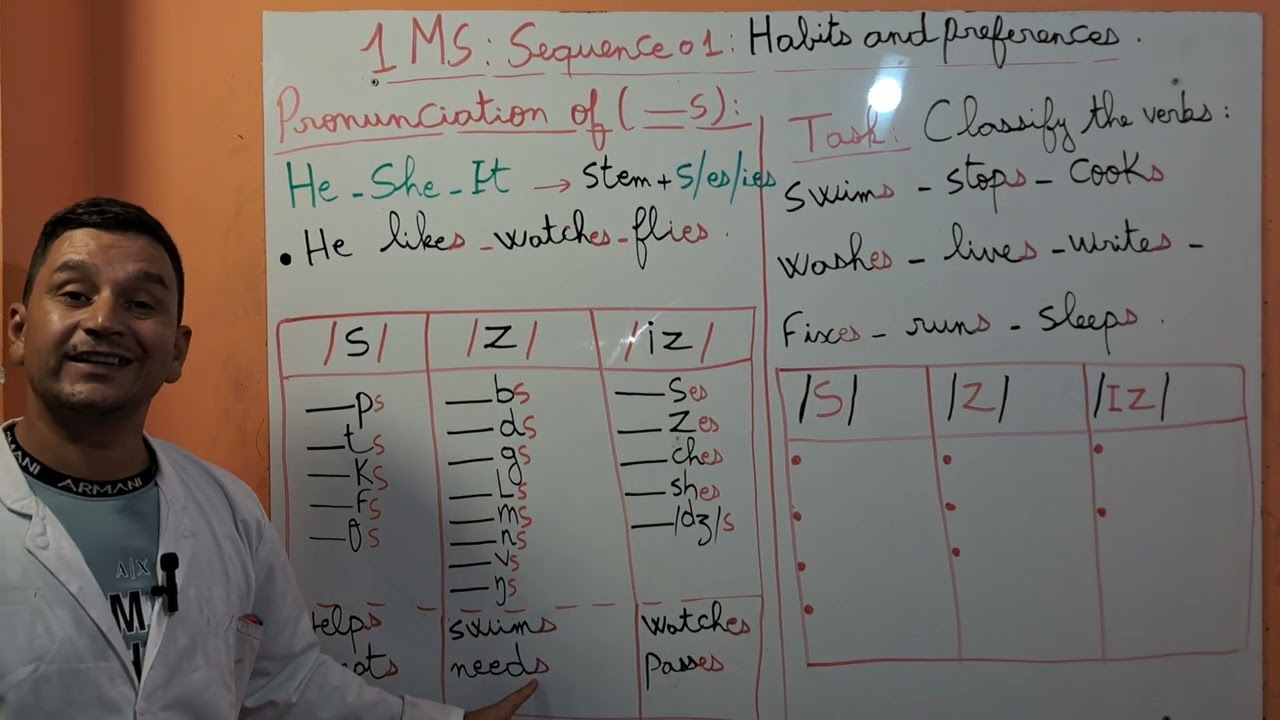 1 MS: Sequence 01: Habits and preferences.
Pronunciation of (—s):
He - She - It → stem + s/es/ies
• He likes - watches - flies.
/s/ /z/ /iz/
—ps —bs —ses
—ts —ds —zes
—ks —gs —ches
—fs —Ls —shes
—θs —ms —/dʒ/s
—ns
—vs
—ŋs
swims watches
needs passes
Task: Classify the verbs:
swims - stops - cooks
washes - lives - writes -
Fixes - runs - sleeps.
/S/ /Z/ /IZ/
ARMANI
A|X